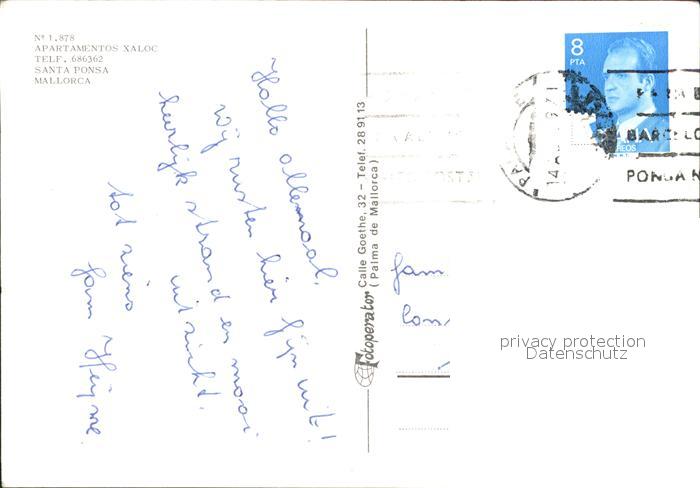 Nº 1.878
APARTAMENTOS XALOC
TELF. 686362
SANTA PONSA
MALLORCA
Hallo allemaal,
Wij rusten hier fijn uit!
heerlijk strand en mooi
uitzicht.
tot ziens
fam
Fotoperator Calle Goethe, 32 – Telef. 28 91 13
( Palma de Mallorca)
8
PTA
BARCELO
PONGA N
14
fam
privacy protection
Datenschutz